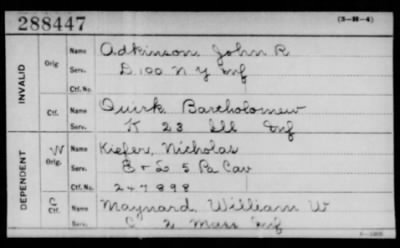 288447 (3-H-4)
INVALID
Orig. Name Adkinson, John R
Serv. D 100 N Y Inf
Ctf. No.
Ctf. Name Quirk, Bartholomew
Serv. K 23 Ill Inf
DEPENDENT
W Orig. Name Kiefer, Nicholas
Serv. B & L 5 Pa Cav
Ctf. No. 247898
C Ctf. Name Maynard, William W
Serv. C 2 Mass Inf